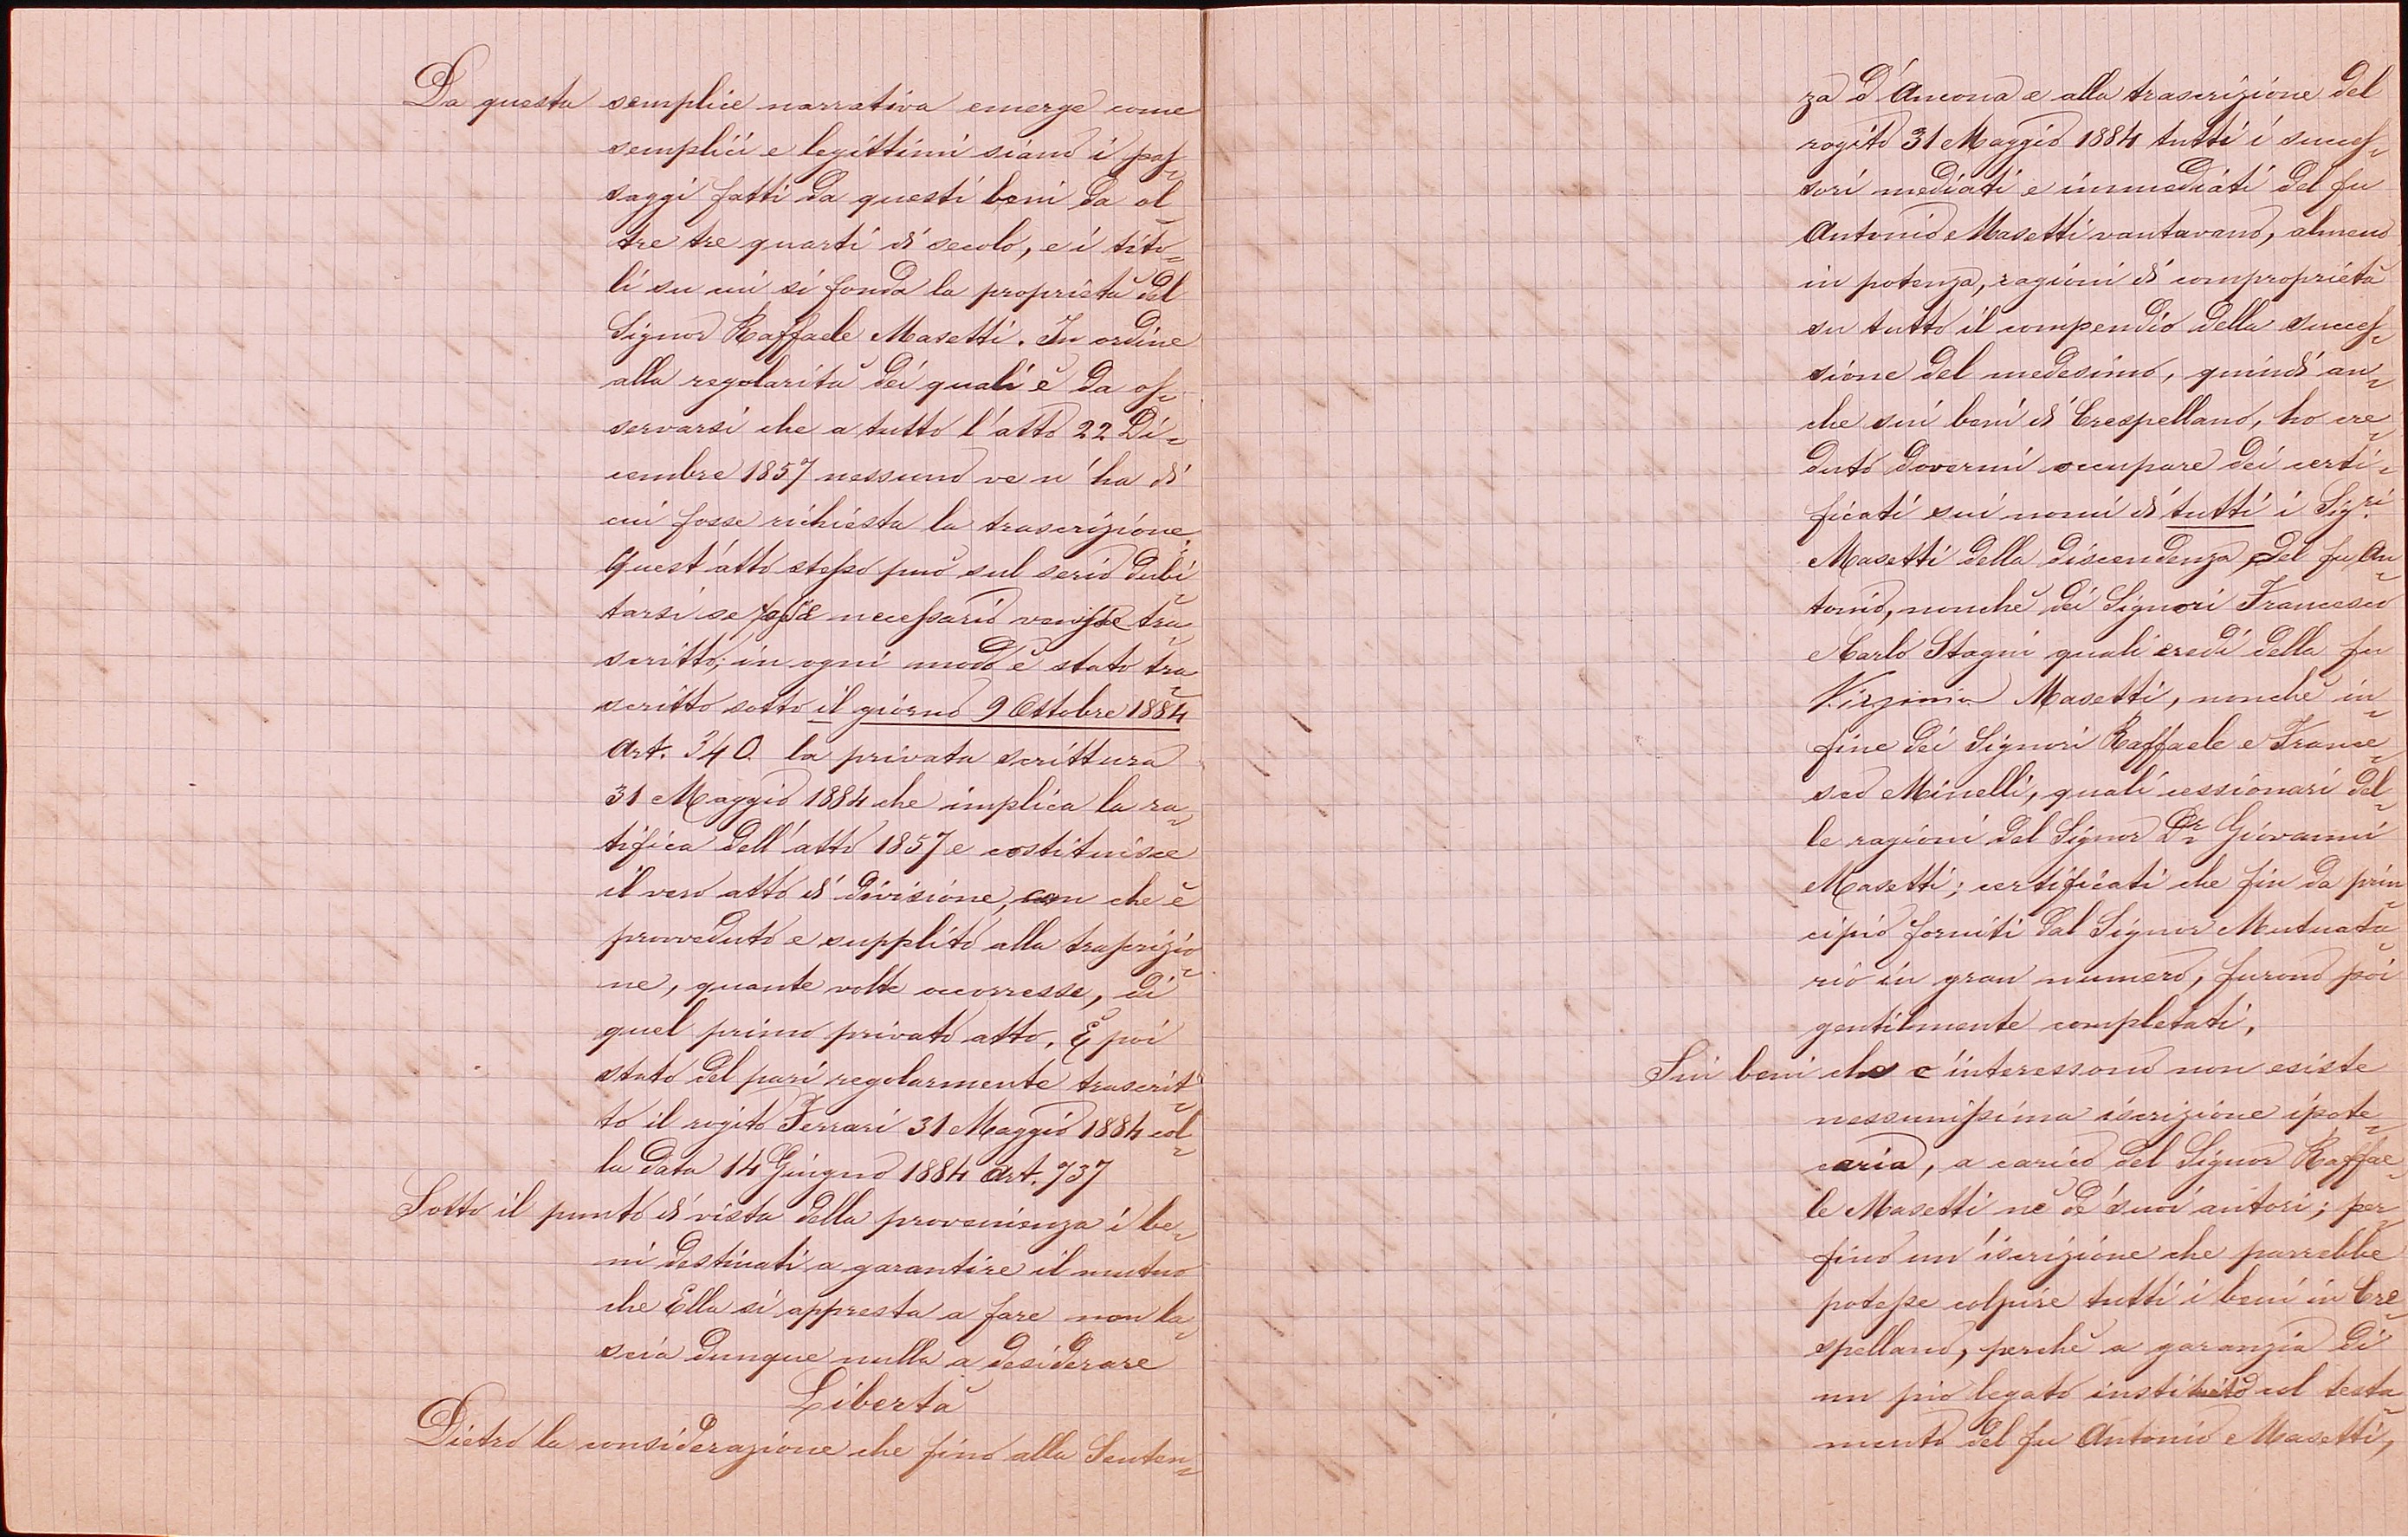 Da questa semplice narrativa emerge come
semplici e legittimi siano i pas-
saggi fatti da questi beni da ol
tre tre quarti di secolo, e i tito-
li su cui si fonda la proprietà del
Signor Raffaele Masetti. In ordine
alla regolarità dei quali è da os-
servarsi che a tutto l'atto 22 Di-
cembre 1857 nessuno ve n'ha di
cui fosse richiesta la trascrizione.
Quest'atto stesso può sul serio dubi-
tarsi se fosse necessario venisse tra-
scritto; in ogni modo è stato tra-
scritto sotto il giorno 9 Ottobre 1884
Art. 340. la privata scrittura
31 Maggio 1884 che implica la ra-
tifica dell'atto 1857 e costituisce
il vero atto di divisione, con che è
provveduto e supplito alla trascrizio-
ne, quante volte occorresse, di
quel primo privato atto. È poi
stato del pari regolarmente trascrit-
to il rogito Ferrari 31 Maggio 1884 col-
la data 14 Giugno 1884 Art. 737
Sotto il punto di vista della provenienza i be-
ni destinati a garantire il mutuo
che Ella si appresta a fare non la-
scia dunque nulla a desiderare
Libertà
Dietro la considerazione che fino alla Senten-
za d'Ancona e alla trascrizione del
rogito 31 Maggio 1884 tutti i succes-
sori mediati e immediati del fu
Antonio Masetti vantavano, almeno
in potenza, ragioni di comproprietà
su tutto il compendio della succes-
sione del medesimo, quindi an-
che sui beni di Crespellano, ho cre-
duto dovermi occupare dei certi-
ficati sui nomi di tutti i Sig.ri
Masetti della discendenza del fu An-
tonio, nonchè dei Signori Francesco
e Carlo Stagni quali eredi della fu
Virginia Masetti, nonchè in-
fine dei Signori Raffaele e France-
sco Minelli, quali cessionari del-
le ragioni del Signor Dr Giovanni
Masetti; certificati che fin da prin-
cipio forniti dal Signor Mutuata-
rio in gran numero, furono poi
gentilmente completati.
Sui beni che c'interessono non esiste
nessunissima iscrizione ipote-
caria, a carico del Signor Raffae-
le Masetti nè de' suoi autori; per-
fino un'iscrizione che parrebbe
potesse colpire tutti i beni in Cre-
spellano, perchè a garanzia di
un pio legato instituito col testa-
mento del fu Antonio Masetti,